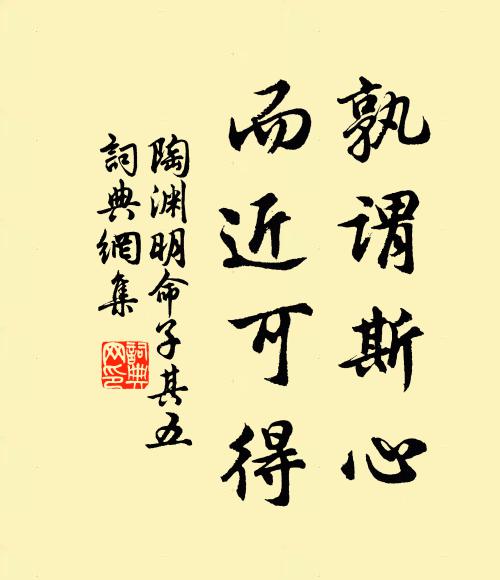 孰謂斯心
而近可得
陶渊明命子其五
詞典網集
詞典
网印